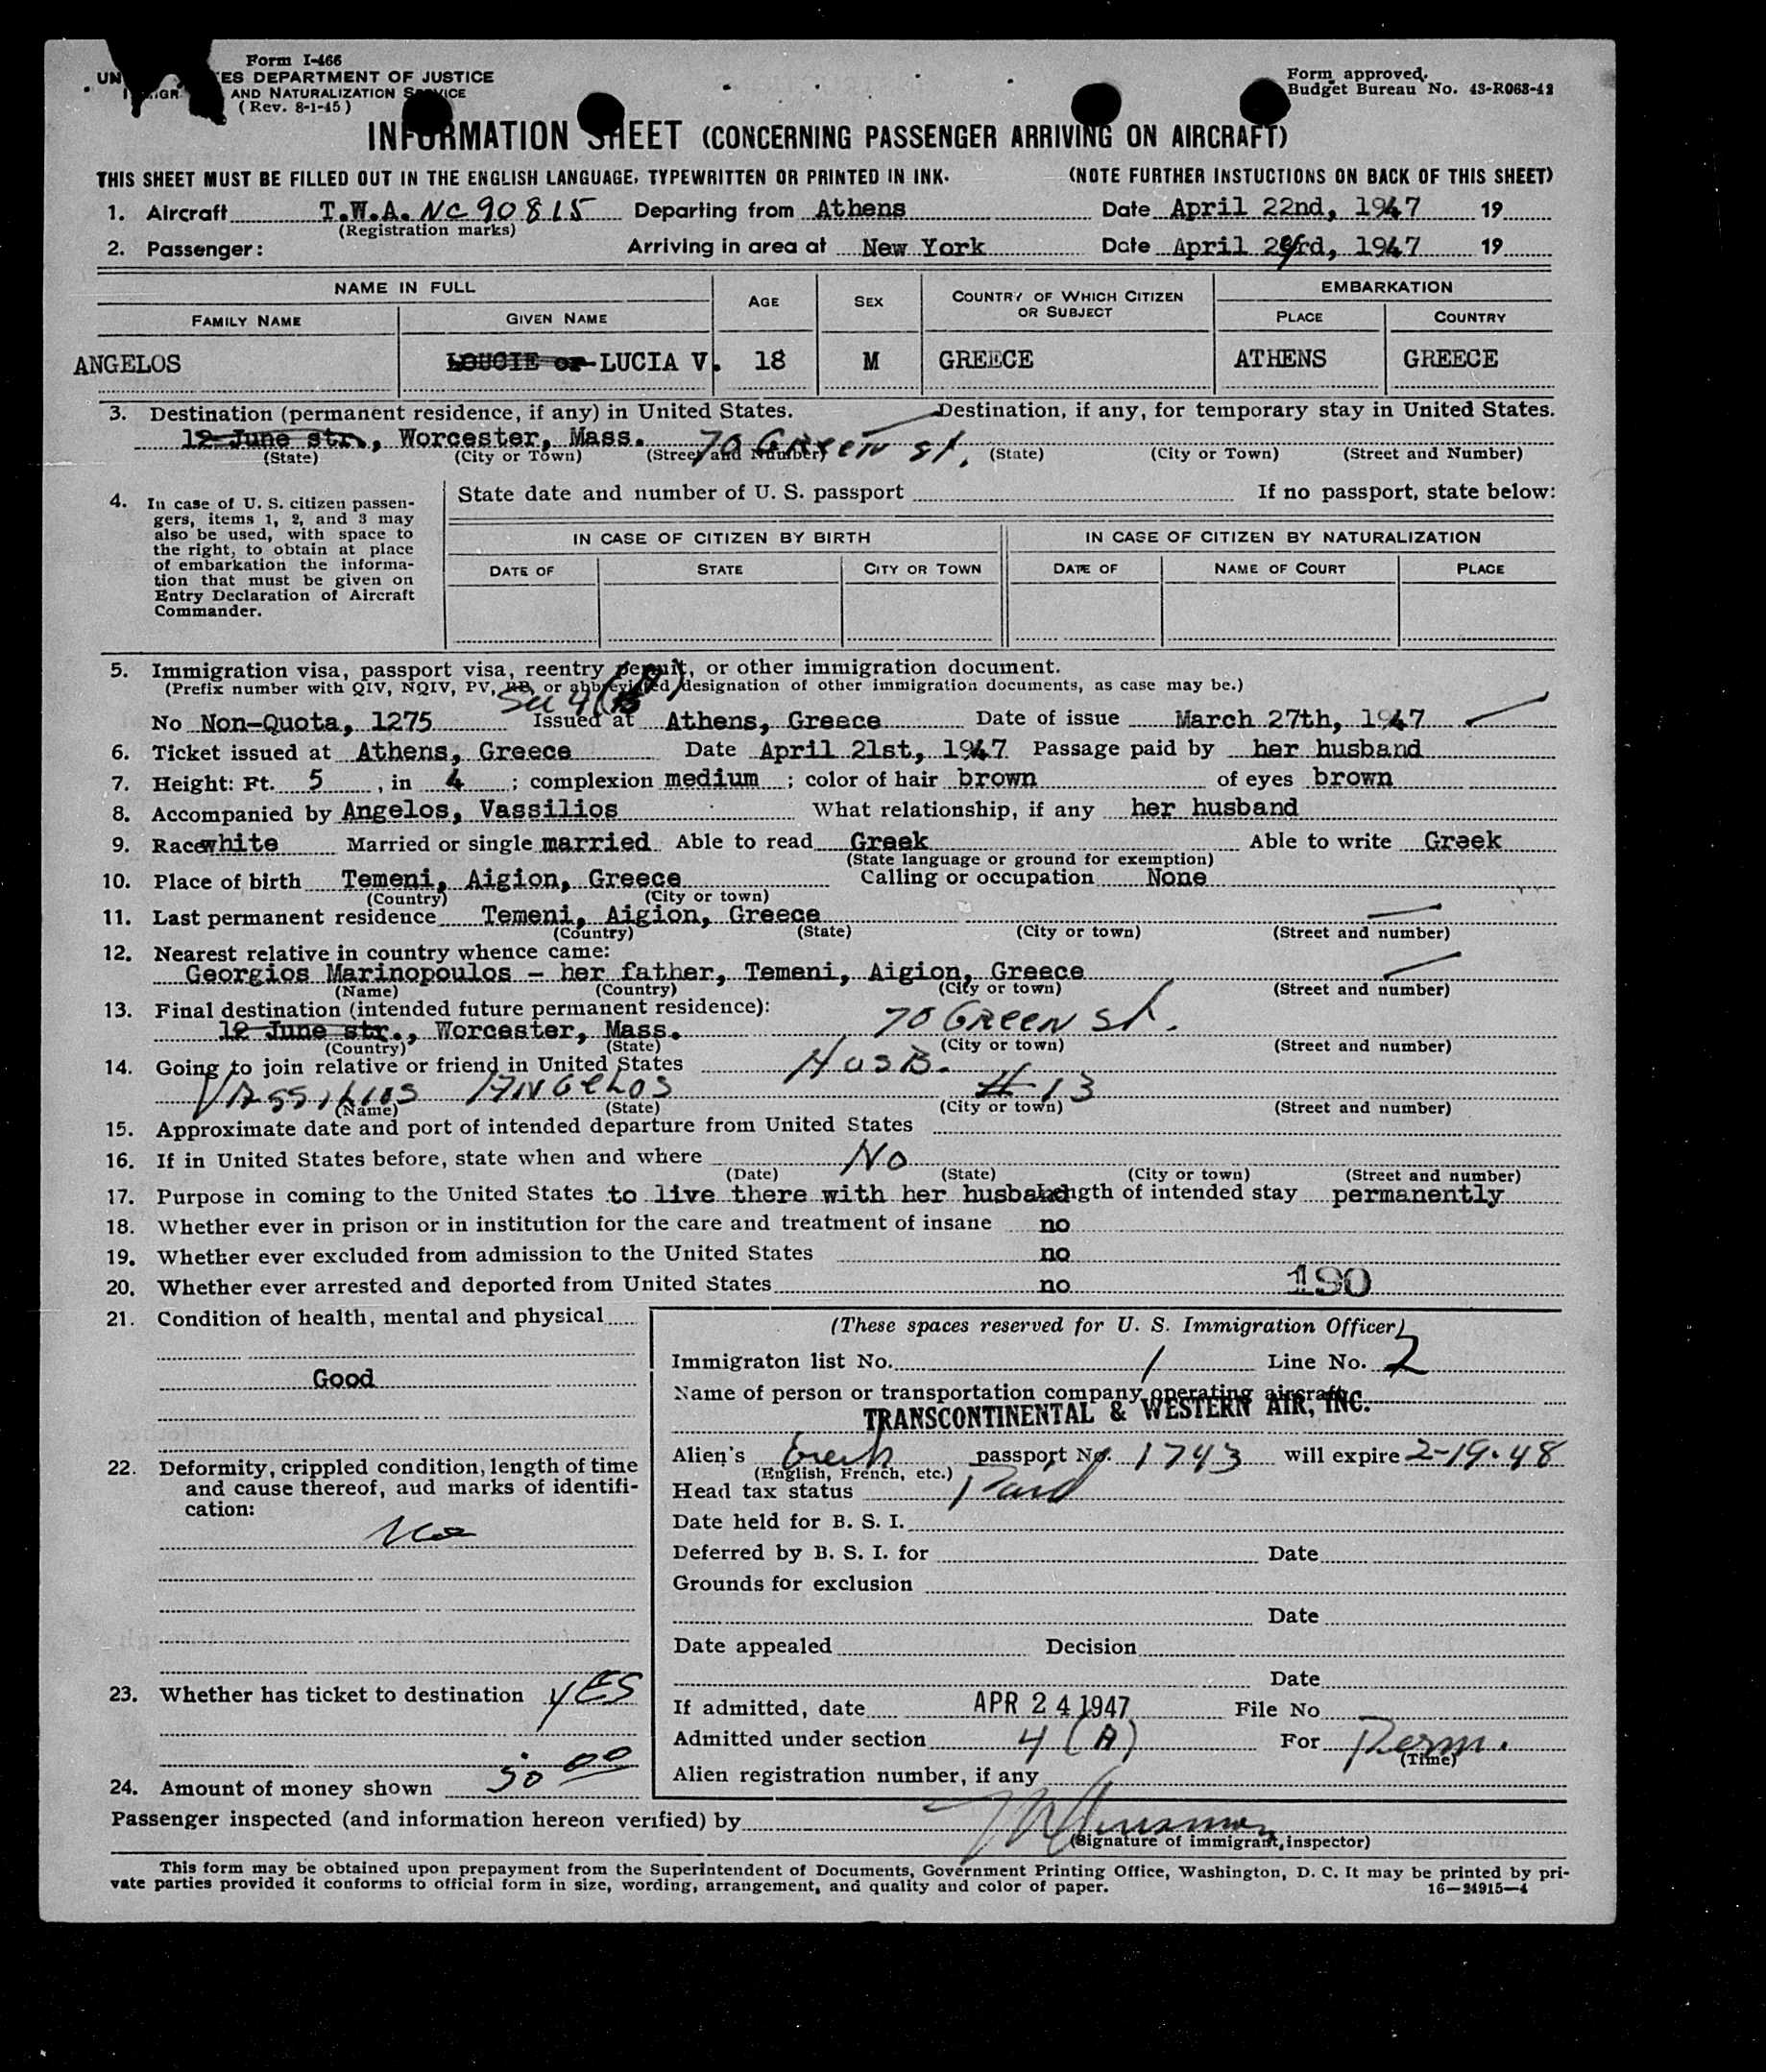 Form I-466
UN ES DEPARTMENT OF JUSTICE
AND NATURALIZATION SERVICE
(Rev. 8-1-45)
Form approved.
Budget Bureau No. 43-R063-42
INFORMATION SHEET (CONCERNING PASSENGER ARRIVING ON AIRCRAFT)
THIS SHEET MUST BE FILLED OUT IN THE ENGLISH LANGUAGE, TYPEWRITTEN OR PRINTED IN INK. (NOTE FURTHER INSTUCTIONS ON BACK OF THIS SHEET)
1. Aircraft T.W.A. NC 90815 Departing from Athens Date April 22nd, 1947 19
(Registration marks)
2. Passenger: Arriving in area at New York Date April 24rd, 1947 19
NAME IN FULL AGE SEX COUNTRY OF WHICH CITIZEN OR SUBJECT EMBARKATION
FAMILY NAME GIVEN NAME PLACE COUNTRY
ANGELOS LOUCIE or LUCIA V. 18 M GREECE ATHENS GREECE
3. Destination (permanent residence, if any) in United States. Destination, if any, for temporary stay in United States.
12 June str., Worcester, Mass. 70 GREEN St.
(State) (City or Town) (Street and Number) (State) (City or Town) (Street and Number)
4. In case of U. S. citizen passengers, items 1, 2, and 3 may also be used, with space to the right, to obtain at place of embarkation the information that must be given on Entry Declaration of Aircraft Commander.
State date and number of U. S. passport If no passport, state below:
IN CASE OF CITIZEN BY BIRTH IN CASE OF CITIZEN BY NATURALIZATION
DATE OF STATE CITY OR TOWN DATE OF NAME OF COURT PLACE
5. Immigration visa, passport visa, reentry permit, or other immigration document.
(Prefix number with QIV, NQIV, PV, RP, or abbreviated designation of other immigration documents, as case may be.)
Sec 4 (A)
No Non-Quota, 1275 Issued at Athens, Greece Date of issue March 27th, 1947
6. Ticket issued at Athens, Greece Date April 21st, 1947 Passage paid by her husband
7. Height: Ft. 5, in 4; complexion medium; color of hair brown of eyes brown
8. Accompanied by Angelos, Vassilios What relationship, if any her husband
9. Race white Married or single married Able to read Greek Able to write Greek
(State language or ground for exemption)
10. Place of birth Temeni, Aigion, Greece Calling or occupation None
(Country) (City or town)
11. Last permanent residence Temeni, Aigion, Greece
(Country) (State) (City or town) (Street and number)
12. Nearest relative in country whence came:
Georgios Marinopoulos - her father, Temeni, Aigion, Greece
(Name) (Country) (City or town) (Street and number)
13. Final destination (intended future permanent residence):
12 June str., Worcester, Mass. 70 GREEN St.
(Country) (State) (City or town) (Street and number)
14. Going to join relative or friend in United States HUSB.
VASSILIOS ANGELOS # 13
(Name) (State) (City or town) (Street and number)
15. Approximate date and port of intended departure from United States
16. If in United States before, state when and where No
(Date) (State) (City or town) (Street and number)
17. Purpose in coming to the United States to live there with her husband Length of intended stay permanently
18. Whether ever in prison or in institution for the care and treatment of insane no
19. Whether ever excluded from admission to the United States no
20. Whether ever arrested and deported from United States no
190
21. Condition of health, mental and physical
Good
22. Deformity, crippled condition, length of time
and cause thereof, aud marks of identifi-
cation:
23. Whether has ticket to destination YES
24. Amount of money shown 50 00
(These spaces reserved for U. S. Immigration Officer)
Immigraton list No. 1 Line No. 2
Name of person or transportation company operating aircraft
TRANSCONTINENTAL & WESTERN AIR, INC.
Alien's Greek passport No. 1743 will expire 2-19-48
(English, French, etc.)
Head tax status Paid
Date held for B. S. I.
Deferred by B. S. I. for Date
Grounds for exclusion
Date
Date appealed Decision
Date
If admitted, date APR 24 1947 File No
Admitted under section 4 (A) For Perm.
(Time)
Alien registration number, if any
Passenger inspected (and information hereon verified) by
(Signature of immigrant, inspector)
This form may be obtained upon prepayment from the Superintendent of Documents, Government Printing Office, Washington, D. C. It may be printed by pri-
vate parties provided it conforms to official form in size, wording, arrangement, and quality and color of paper. 16—24915—4